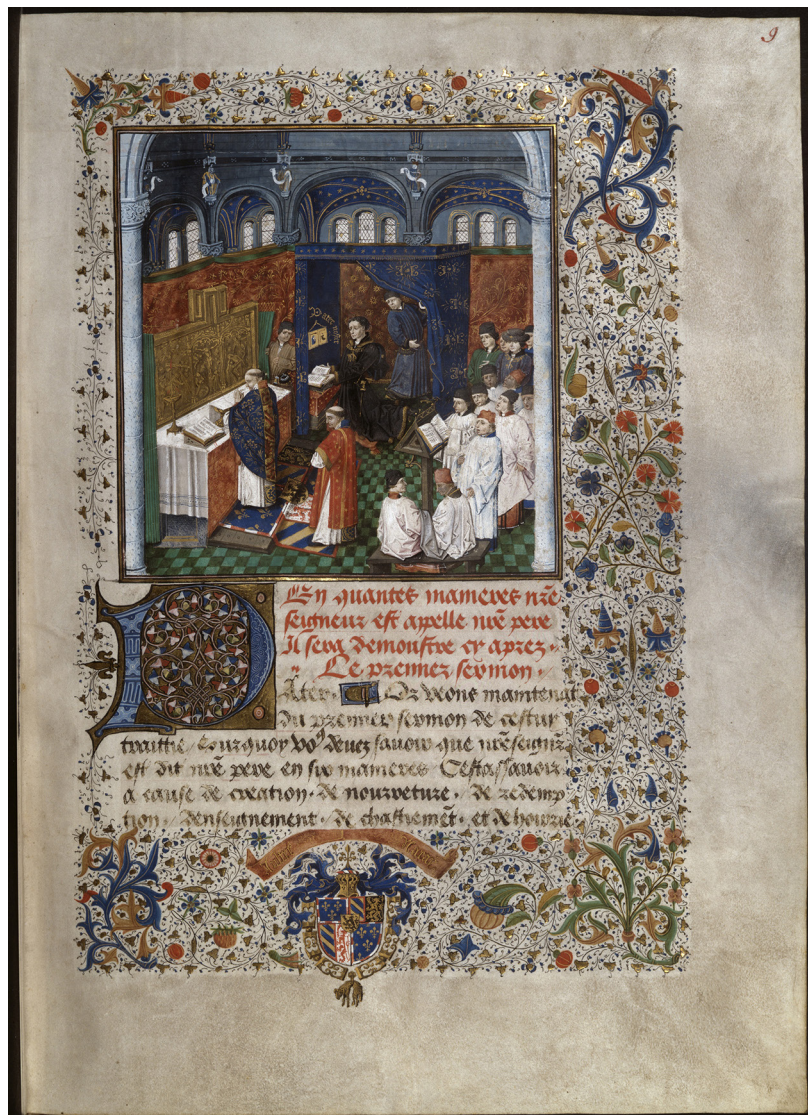 9
Pater noster
En quantes manieres nr̃e
seigneur est apelle nr̃e pere
Il sera demonstre cy aprez.
Le premier sermon.
Ater. Or veons maintenãt
du premier sermon de cestui
traittie / Pour quoy voꝰ deuez sauoir que nr̃e seignr̃
est dit nr̃e pere en six manieres Cestassauoir.
a cause de creation. de nourreture. / de redemp
tion / denseignement. / de chastiemẽt. et de hoirie